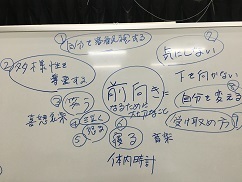 ①自分で意識する
②多様性を尊重する
③笑う
喜怒哀楽
④泣く
怒る
⑤
前向き
なるために
大切なこと
=
②気にしない
下を向かない
自分を変える
受け取め方
⑥寝る
音楽
体内時計